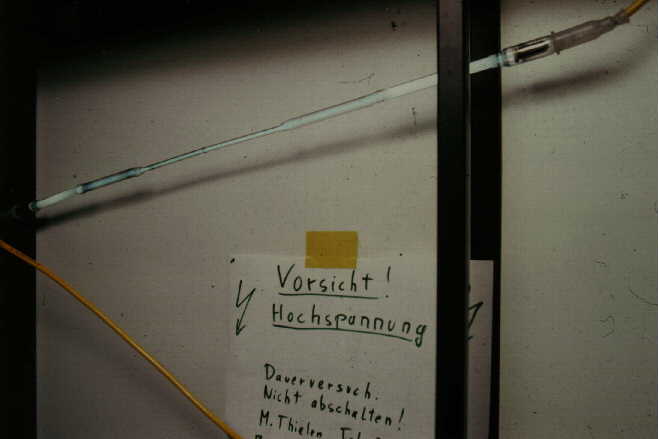 Vorsicht!
Hochspannung
Dauerversuch.
Nicht abschalten!
M. Thielen